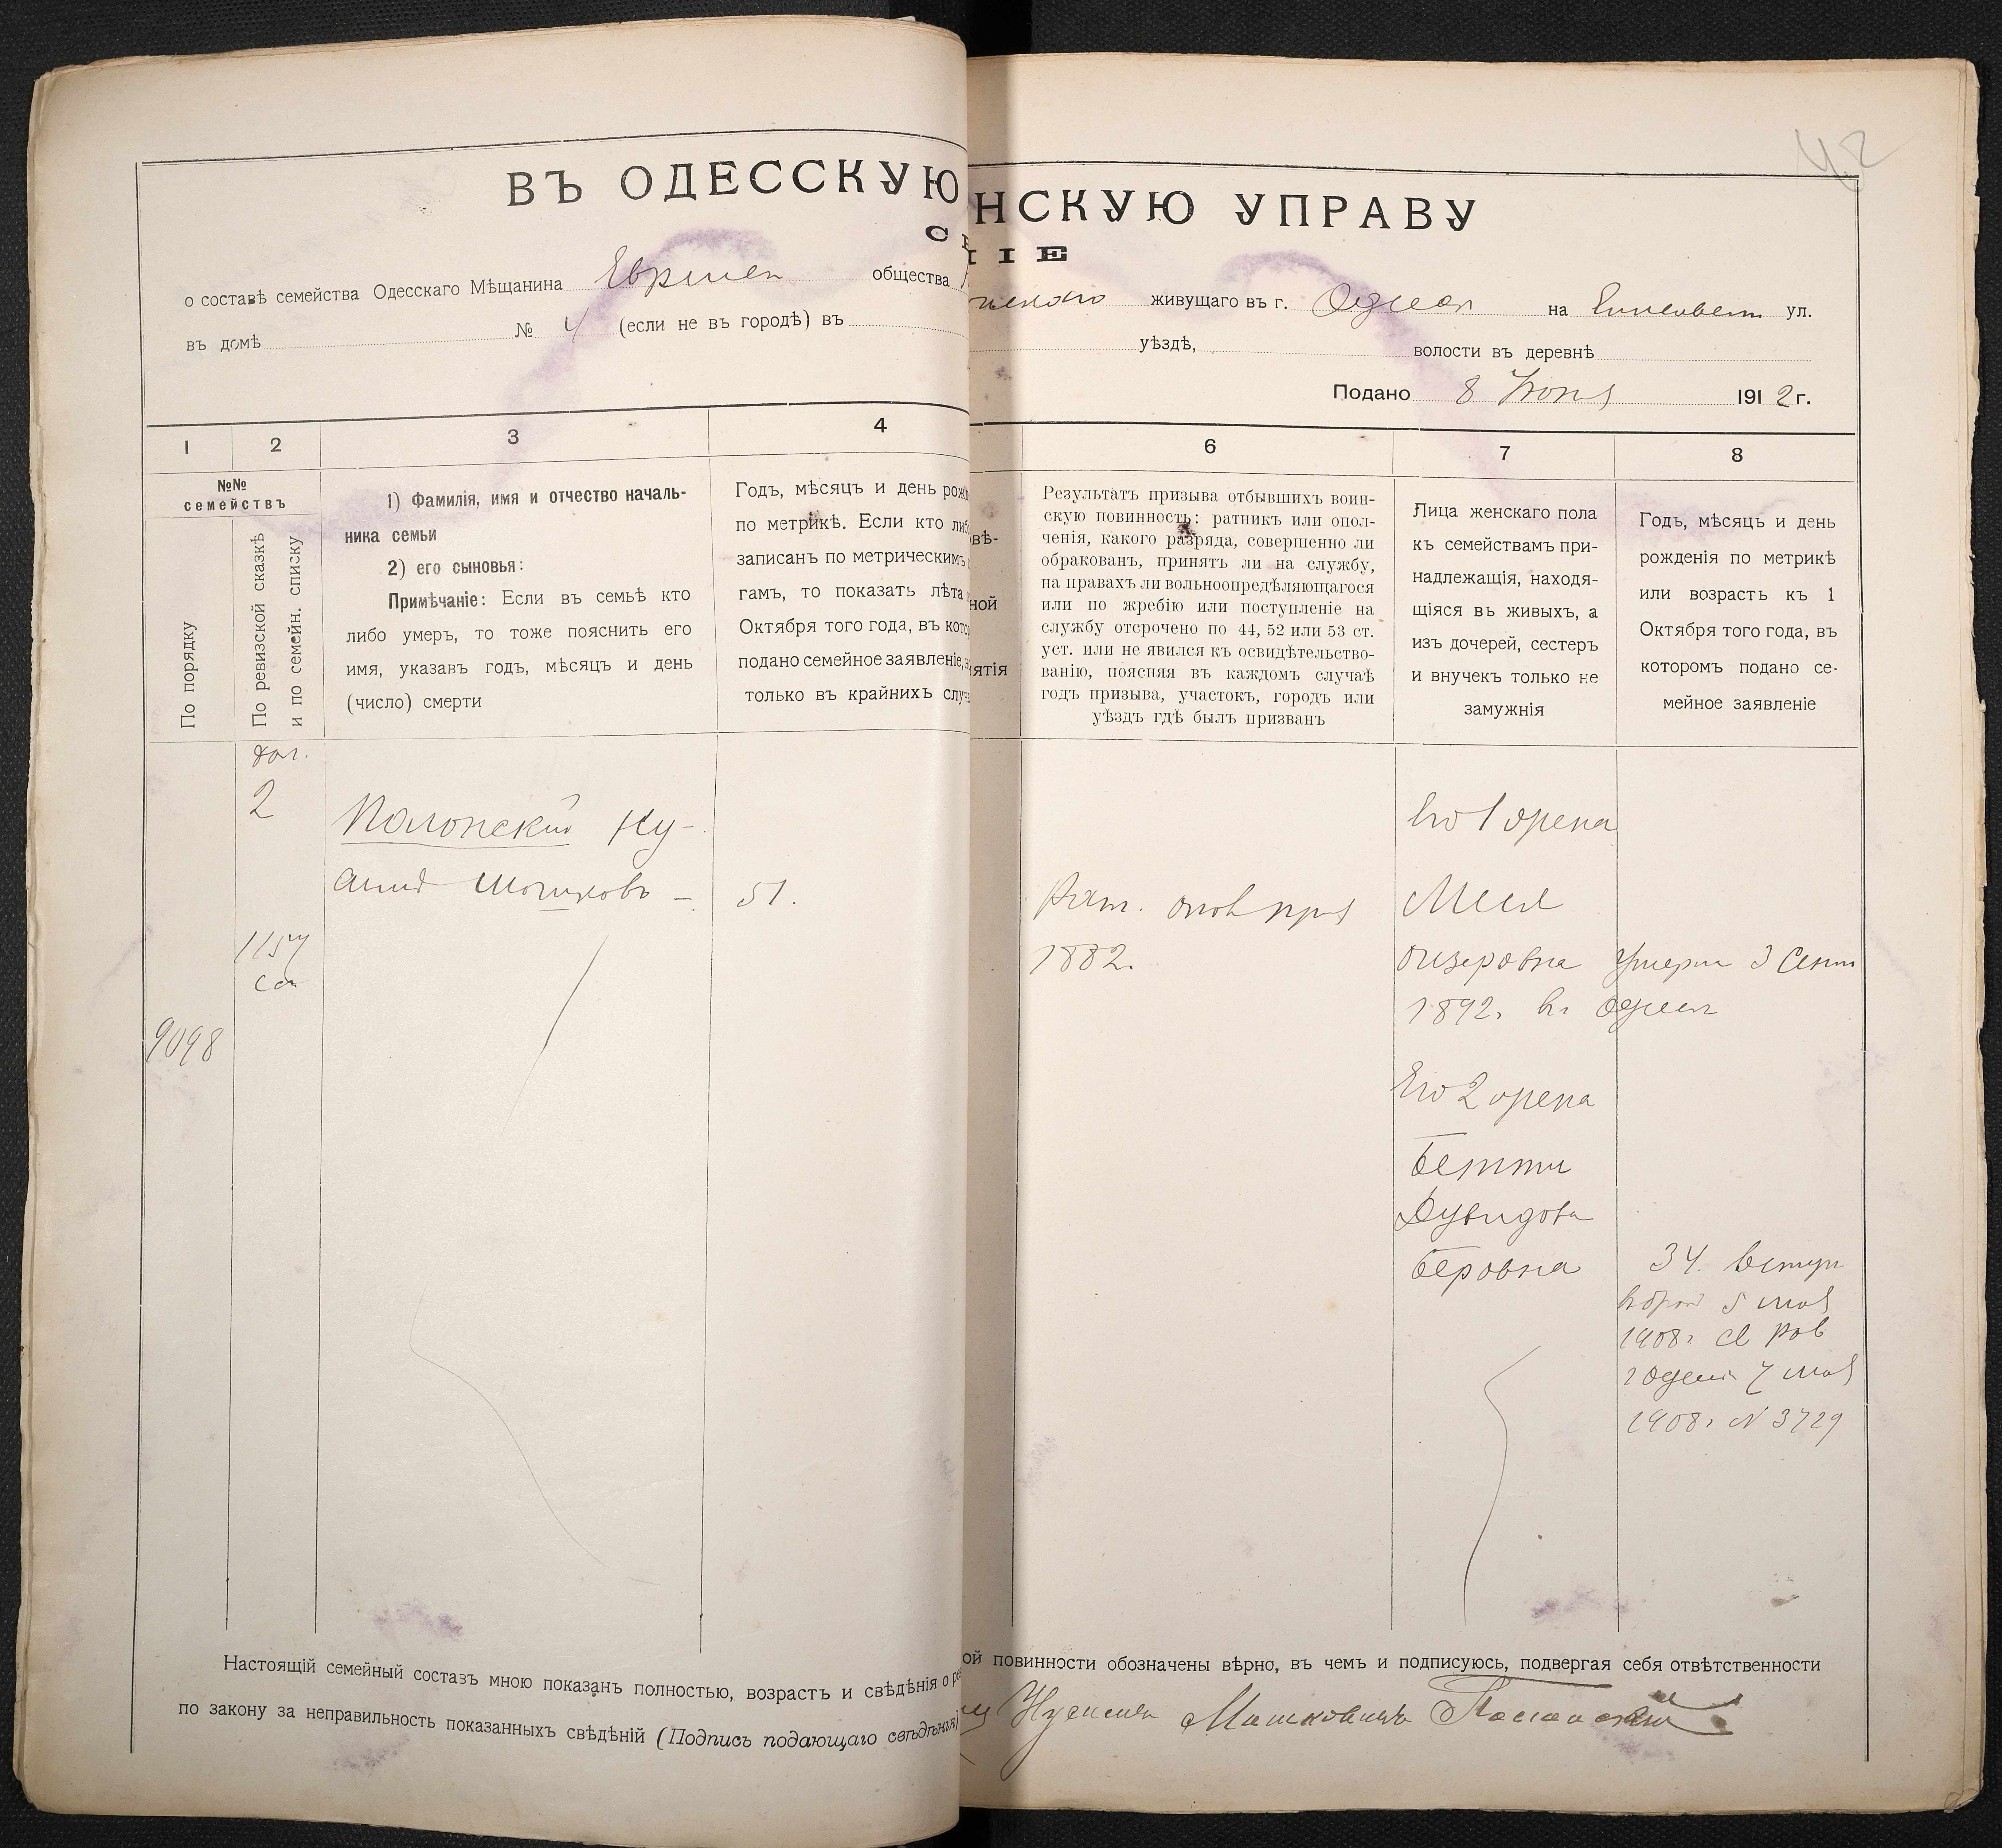 42
ВЪ ОДЕССКУЮ НСКУЮ УПРАВУ
ІЕ
о составѣ семейства Одесскаго Мѣщанина общества живущаго въ г. Одессѣ на ул.
въ домѣ № 4 (если не въ городѣ) въ уѣздѣ, волости въ деревнѣ
Подано 8 Іюня 1912 г.
1 2 3 4 6 7 8
№№
семействъ
По порядку
По ревизской сказкѣ
и по семейн. списку
1) Фамилія, имя и отчество началь-
ника семьи
2) его сыновья:
Примѣчаніе: Если въ семьѣ кто
либо умеръ, то тоже пояснить его
имя, указавъ годъ, мѣсяцъ и день
(число) смерти
Годъ, мѣсяцъ и день рож
по метрикѣ. Если кто либ
записанъ по метрическимъ
гамъ, то показать лѣта
Октября того года, въ кото
подано семейное заявленіе,
только въ крайнихъ случа
вѣ-
ной
ятія
Результатъ призыва отбывшихъ воин-
скую повинность: ратникъ или опол-
ченія, какого разряда, совершенно ли
обракованъ, принятъ ли на службу,
на правахъ ли вольноопредѣляющагося
или по жребію или поступленіе на
службу отсрочено по 44, 52 или 53 ст.
уст. или не явился къ освидѣтельство-
ванію, поясняя въ каждомъ случаѣ
годъ призыва, участокъ, городъ или
уѣздъ гдѣ былъ призванъ
Лица женскаго пола
къ семействамъ при-
надлежащія, находя-
щіяся въ живыхъ, а
изъ дочерей, сестеръ
и внучекъ только не
замужнія
Годъ, мѣсяцъ и день
рожденія по метрикѣ
или возрастъ къ 1
Октября того года, въ
которомъ подано се-
мейное заявленіе
2
Полонскій Ну-
51.
Его 1 жена
1882.
1157
9098
умерла 3 Сент
1892. въ Одессѣ
Его 2 жена
Бетти
Дувидова
Беровна
34. вступ
въ бракъ 5 мая
1908. св. рав
г Одессы 7 мая
1908. N 3729
Настоящій семейный составъ мною показанъ полностью, возрастъ и свѣдѣнія о ой повинности обозначены вѣрно, въ чемъ и подписуюсь, подвергая себя отвѣтственности
по закону за неправильность показанныхъ свѣдѣній (Подпись подающаго свѣдѣнія) Мошковичъ Полонскій